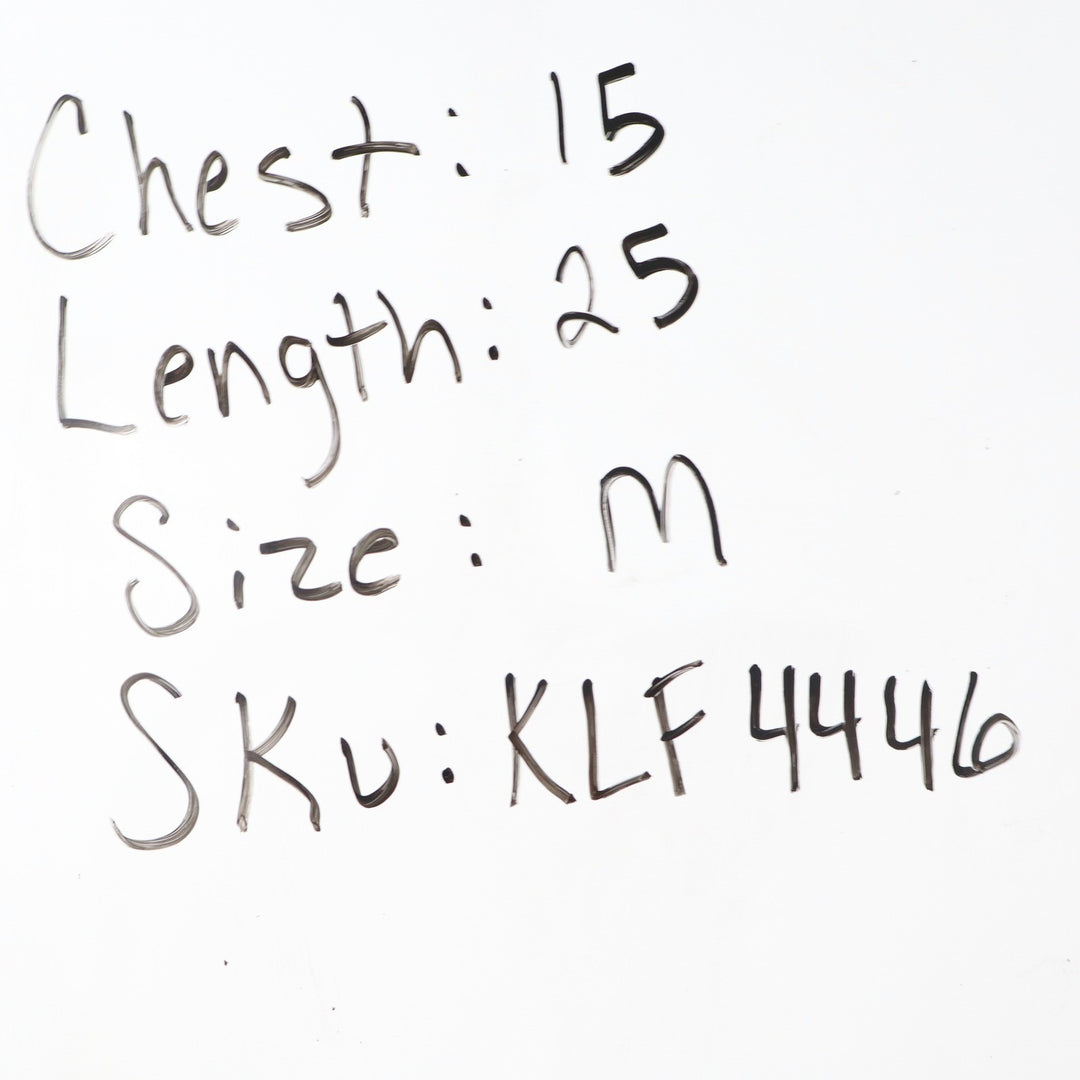 Chest: 15
Length: 25
Size: M
SKU: KLF4446